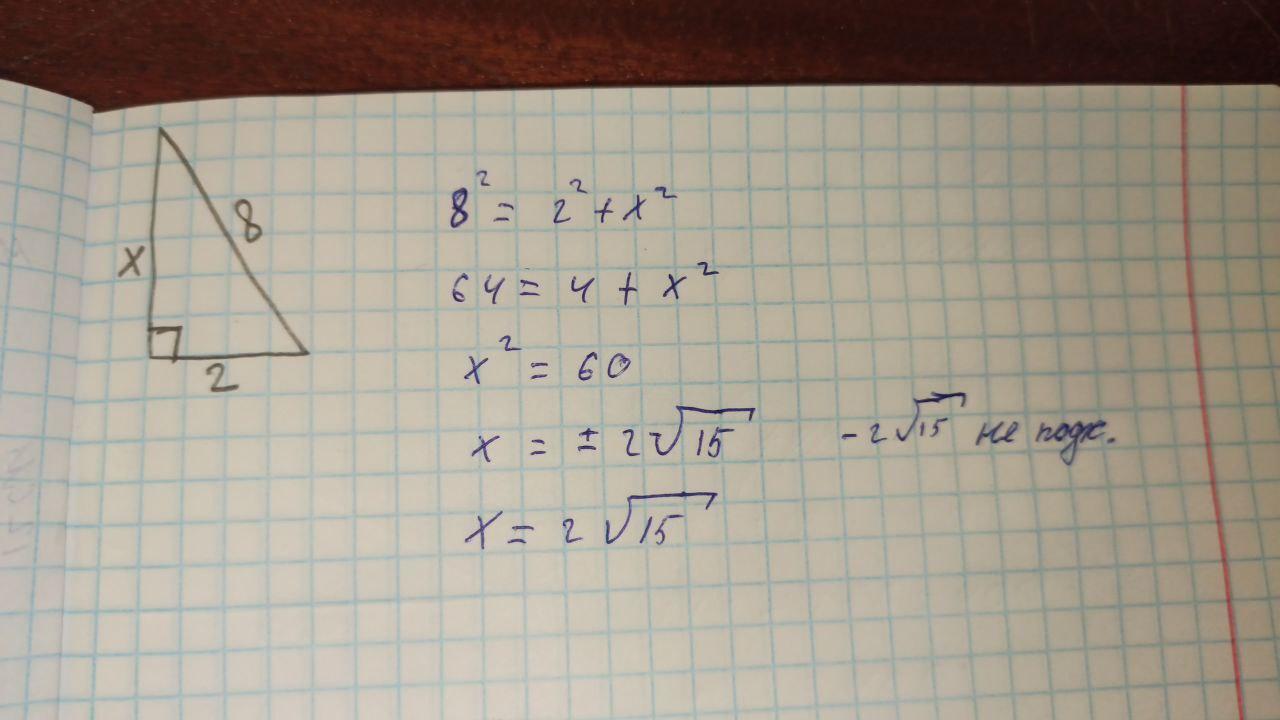 x
8
2
8² = 2² + x²
64 = 4 + x²
x² = 60
x = ± 2√15 -2√15 не подх.
x = 2√15